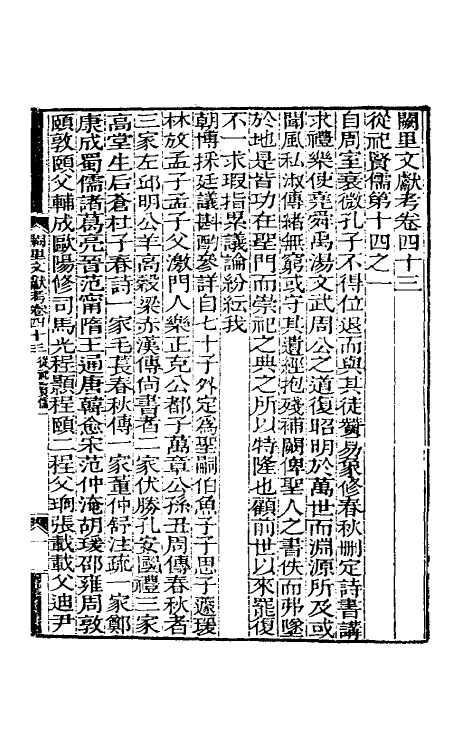 闕里文獻考卷四十三
從祀賢儒第十四之一
自周室衰微孔子不得位退而與其徒贊易象修春秋刪定詩書講
求禮樂使堯舜禹湯文武周公之道復昭明於萬世而淵源所及或
聞風私淑傳緒無窮或守其遺經抱殘補闕俾聖人之書佚而弗墜
於地是皆功在聖門而崇祀之典之所以特隆也顧前世以來罷復
不一求瑕指累議論紛紜我
朝博採廷議斟酌參詳自七十子外定為聖嗣伯魚子子思子蘧瑗
林放孟子孟子父激門人樂正克公都子萬章公孫丑周傳春秋者
三家左邱明公羊高穀梁赤漢傳尙書者二家伏勝孔安國禮三家
高堂生后蒼杜子春詩一家毛萇春秋傳一家董仲舒注疏一家鄭
康成蜀儒諸葛亮晉范甯隋王通唐韓愈宋范仲淹胡瑗邵雍周敦
頤敦頤父輔成歐陽修司馬光程顥程頤二程父珦張載載父迪尹
闕里文獻考卷四十三 從祀賢儒
一